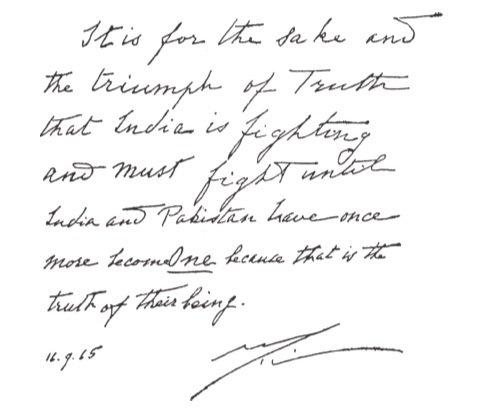 It is for the sake and
the triumph of Truth
that India is fighting
and must fight until
India and Pakistan have once
more become One because that is the
truth of their being.
16.9.65